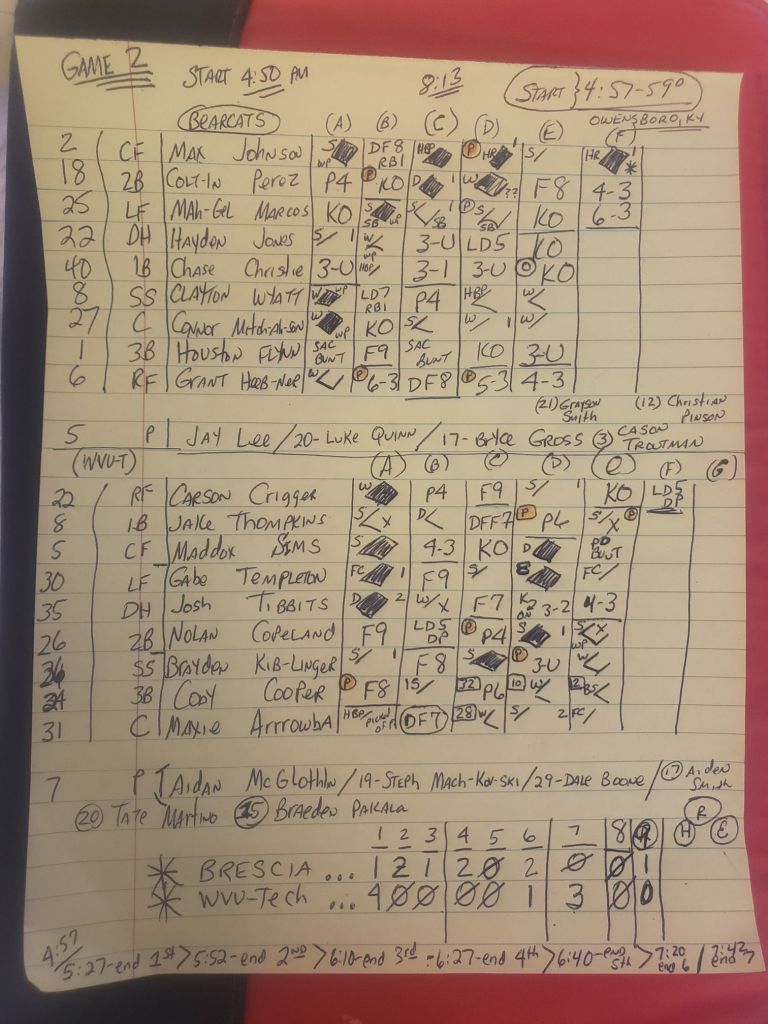 GAME 2 START 4:50 PM 8:13 START } 4:57-59°
BEARCATS (A) (B) (C) (D) E (F) OWENSBORO, KY
2 CF MAX Johnson S WP DF8 RB1 HBP P HR 1 S/ HR 1 *
18 2B COLT-IN Perez P4 P KO D 1 W ?? F8 4-3
25 LF MAh-Gel Marcos KO S SB WP S/ SB P S/ SB KO 6-3
22 DH Hayden Jones S/ 1 W 3-U LD5 KO
40 1B Chase Christie 3-U WP HBP/ 3-1 3-U KO
8 SS CLAYTON WYATT W WP LD7 RB1 P4 HBP W/
27 C Connor W WP KO S W/ 1 W/
1 3B Houston FLYNN SAC BUNT F9 SAC BUNT KO 3-U
6 RF GRANT Hoob-Ner W P 6-3 DF8 P 5-3 4-3
(21) GRAYSON Smith (12) Christian PINSON
5 P JAY Lee / 20- LUKE QUINN / 17- BRYCE GROSS (3) CASON TROUTMAN
(WVU-T) (A) (B) (C) (D) (E) (F) (G)
22 RF CARSON Crigger W P4 F9 S/ 1 KO LD5 DP
8 1B JAKE THOMPKINS S/X D DFF7 P P6 S/X P
5 CF MADDOX SIMS S 4-3 KO D PO BUNT
30 LF Gabe TEMPLETON FC 1 F9 S/ FC/
35 DH Josh TIBBITS D 2 W/X F7 3-2 4-3
26 2B NOLAN COPELAND F9 LD5 DP P P4 S 1 S/X WP
SS BRAYDEN KIB-LINGER S/ 1 F8 S P 3-U W
3B CODY COOPER P F8 1S/ 32 P6 10 W/
31 C MAXIE ArrrowbA HBP/ PICKED OFF DF7 28 W S/ 2 FC/
7 P AIDAN McGLOTHIN / 19-STEPH MACH-KOV-SKI / 29-DALE BOONE / (17) AiDEN Smith
(20) TATE MARTINO (15) BRAEDEN PAKALA
1 2 3 4 5 6 7 8 9 R H E
* BRESCIA ... 1 2 1 2 0 2 0 0 1
* WVU-Tech ... 4 0 0 0 0 1 3 0 0
4:57/5:27-end 1st > 5:52-end 2ND > 6:10-end 3rd - 6:27-end 4th > 6:40-end 5th > 7:20 end 6 / 7:42 end 7